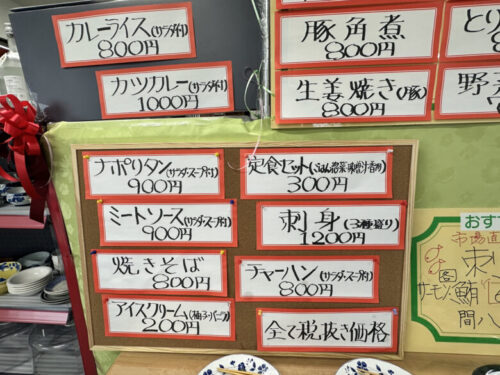 カレーライス(サラダ付)
800円
カツカレー(サラダ付)
1000円
豚角煮
800円
生姜焼き(豚)
800円
とり
野
ナポリタン(サラダ・スープ付)
900円
ミートソース(サラダ・スープ付)
900円
焼きそば
800円
アイスクリーム(柚子・バーク)
200円
定食セット(ごはん・惣菜・味噌汁・香物)
300円
刺身(3種盛り)
1200円
チャーハン(サラダ・スープ付)
800円
全て税抜き価格
おす
市場直
刺
サーモン
鮪
間八